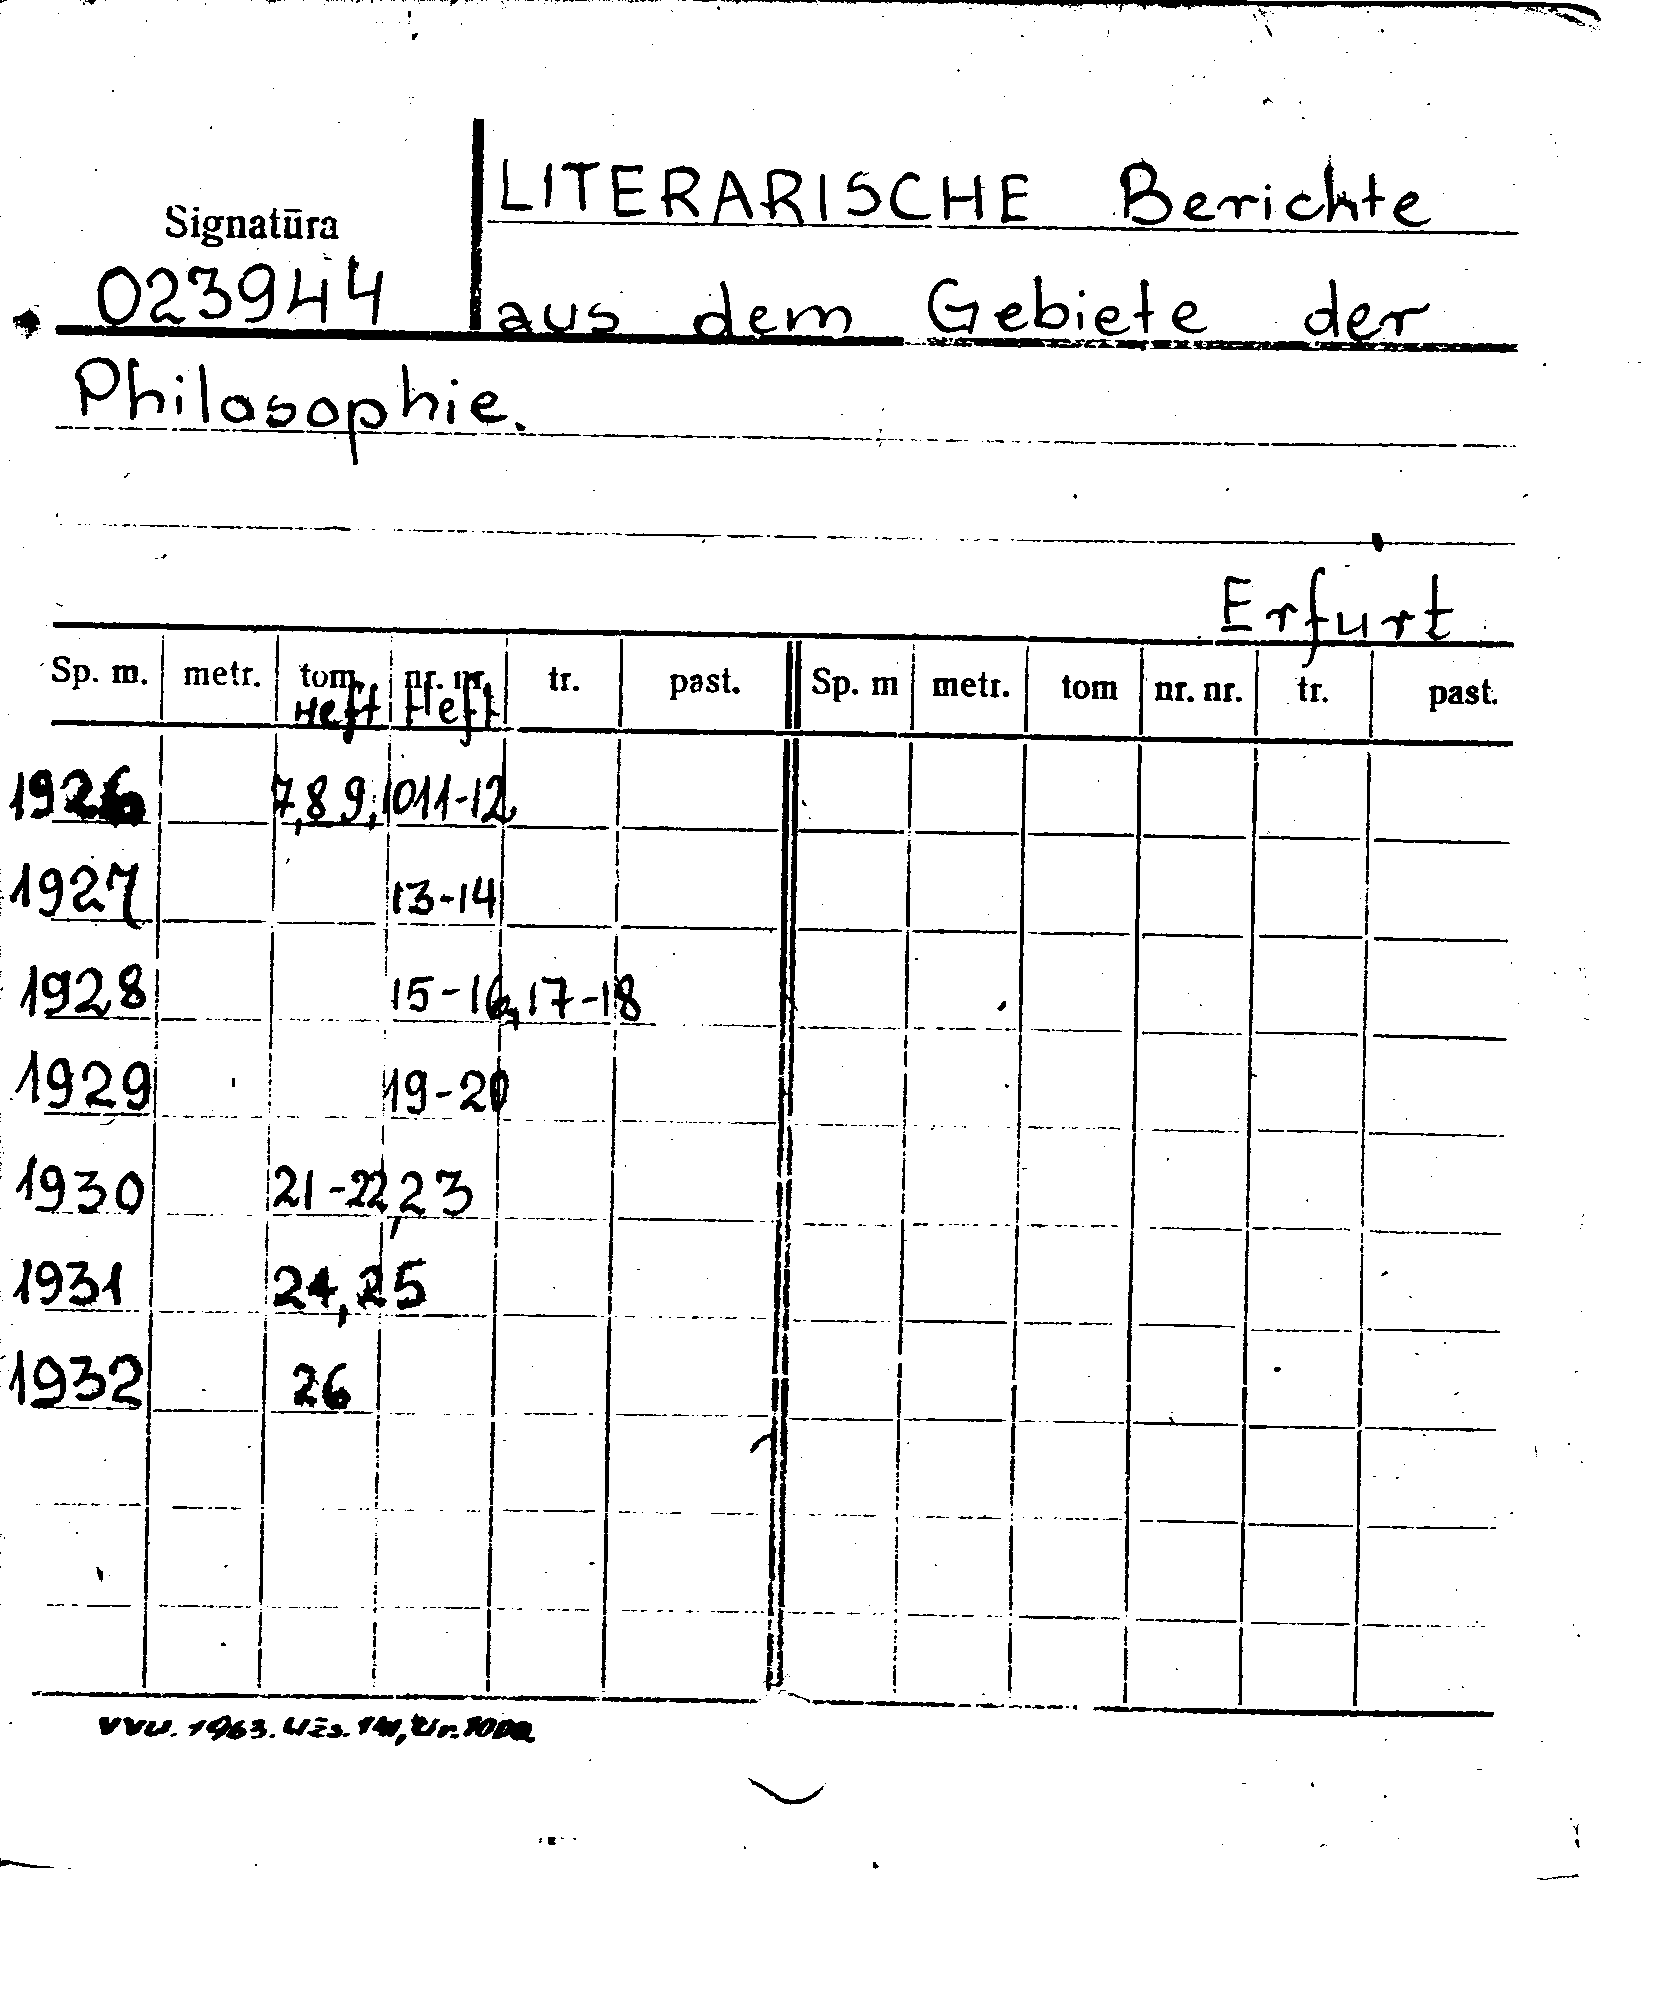 LITERARISCHE Berichte
Signatūra
023944
aus dem Gebiete der
Philosophie.
Erfurt
Sp. m. metr. tom nr. nr. tr. past. Sp. m metr. tom nr. nr. tr. past.
Heft Heft
1926 7,8 9,10 11-12
1927 13-14
1928 15-16, 17-18
1929 19-20
1930 21-22, 23
1931 24, 25
1932 26
VVU. 1963. Užs.